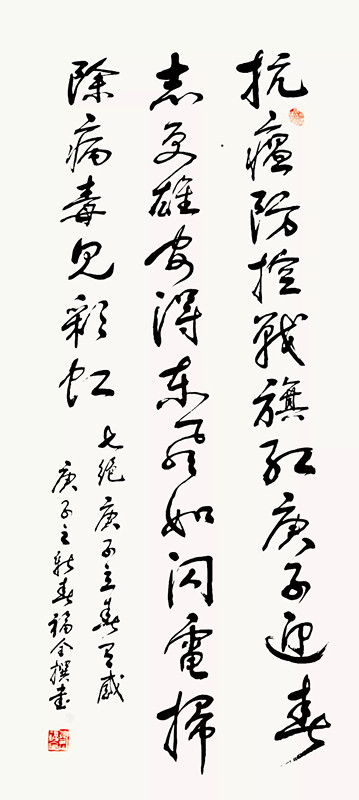 抗瘟防控戰旗紅庚子迎春
志更雄安得東風如閃電掃
除病毒見彩虹
七絕庚子立春有感
庚子之新春福全撰書